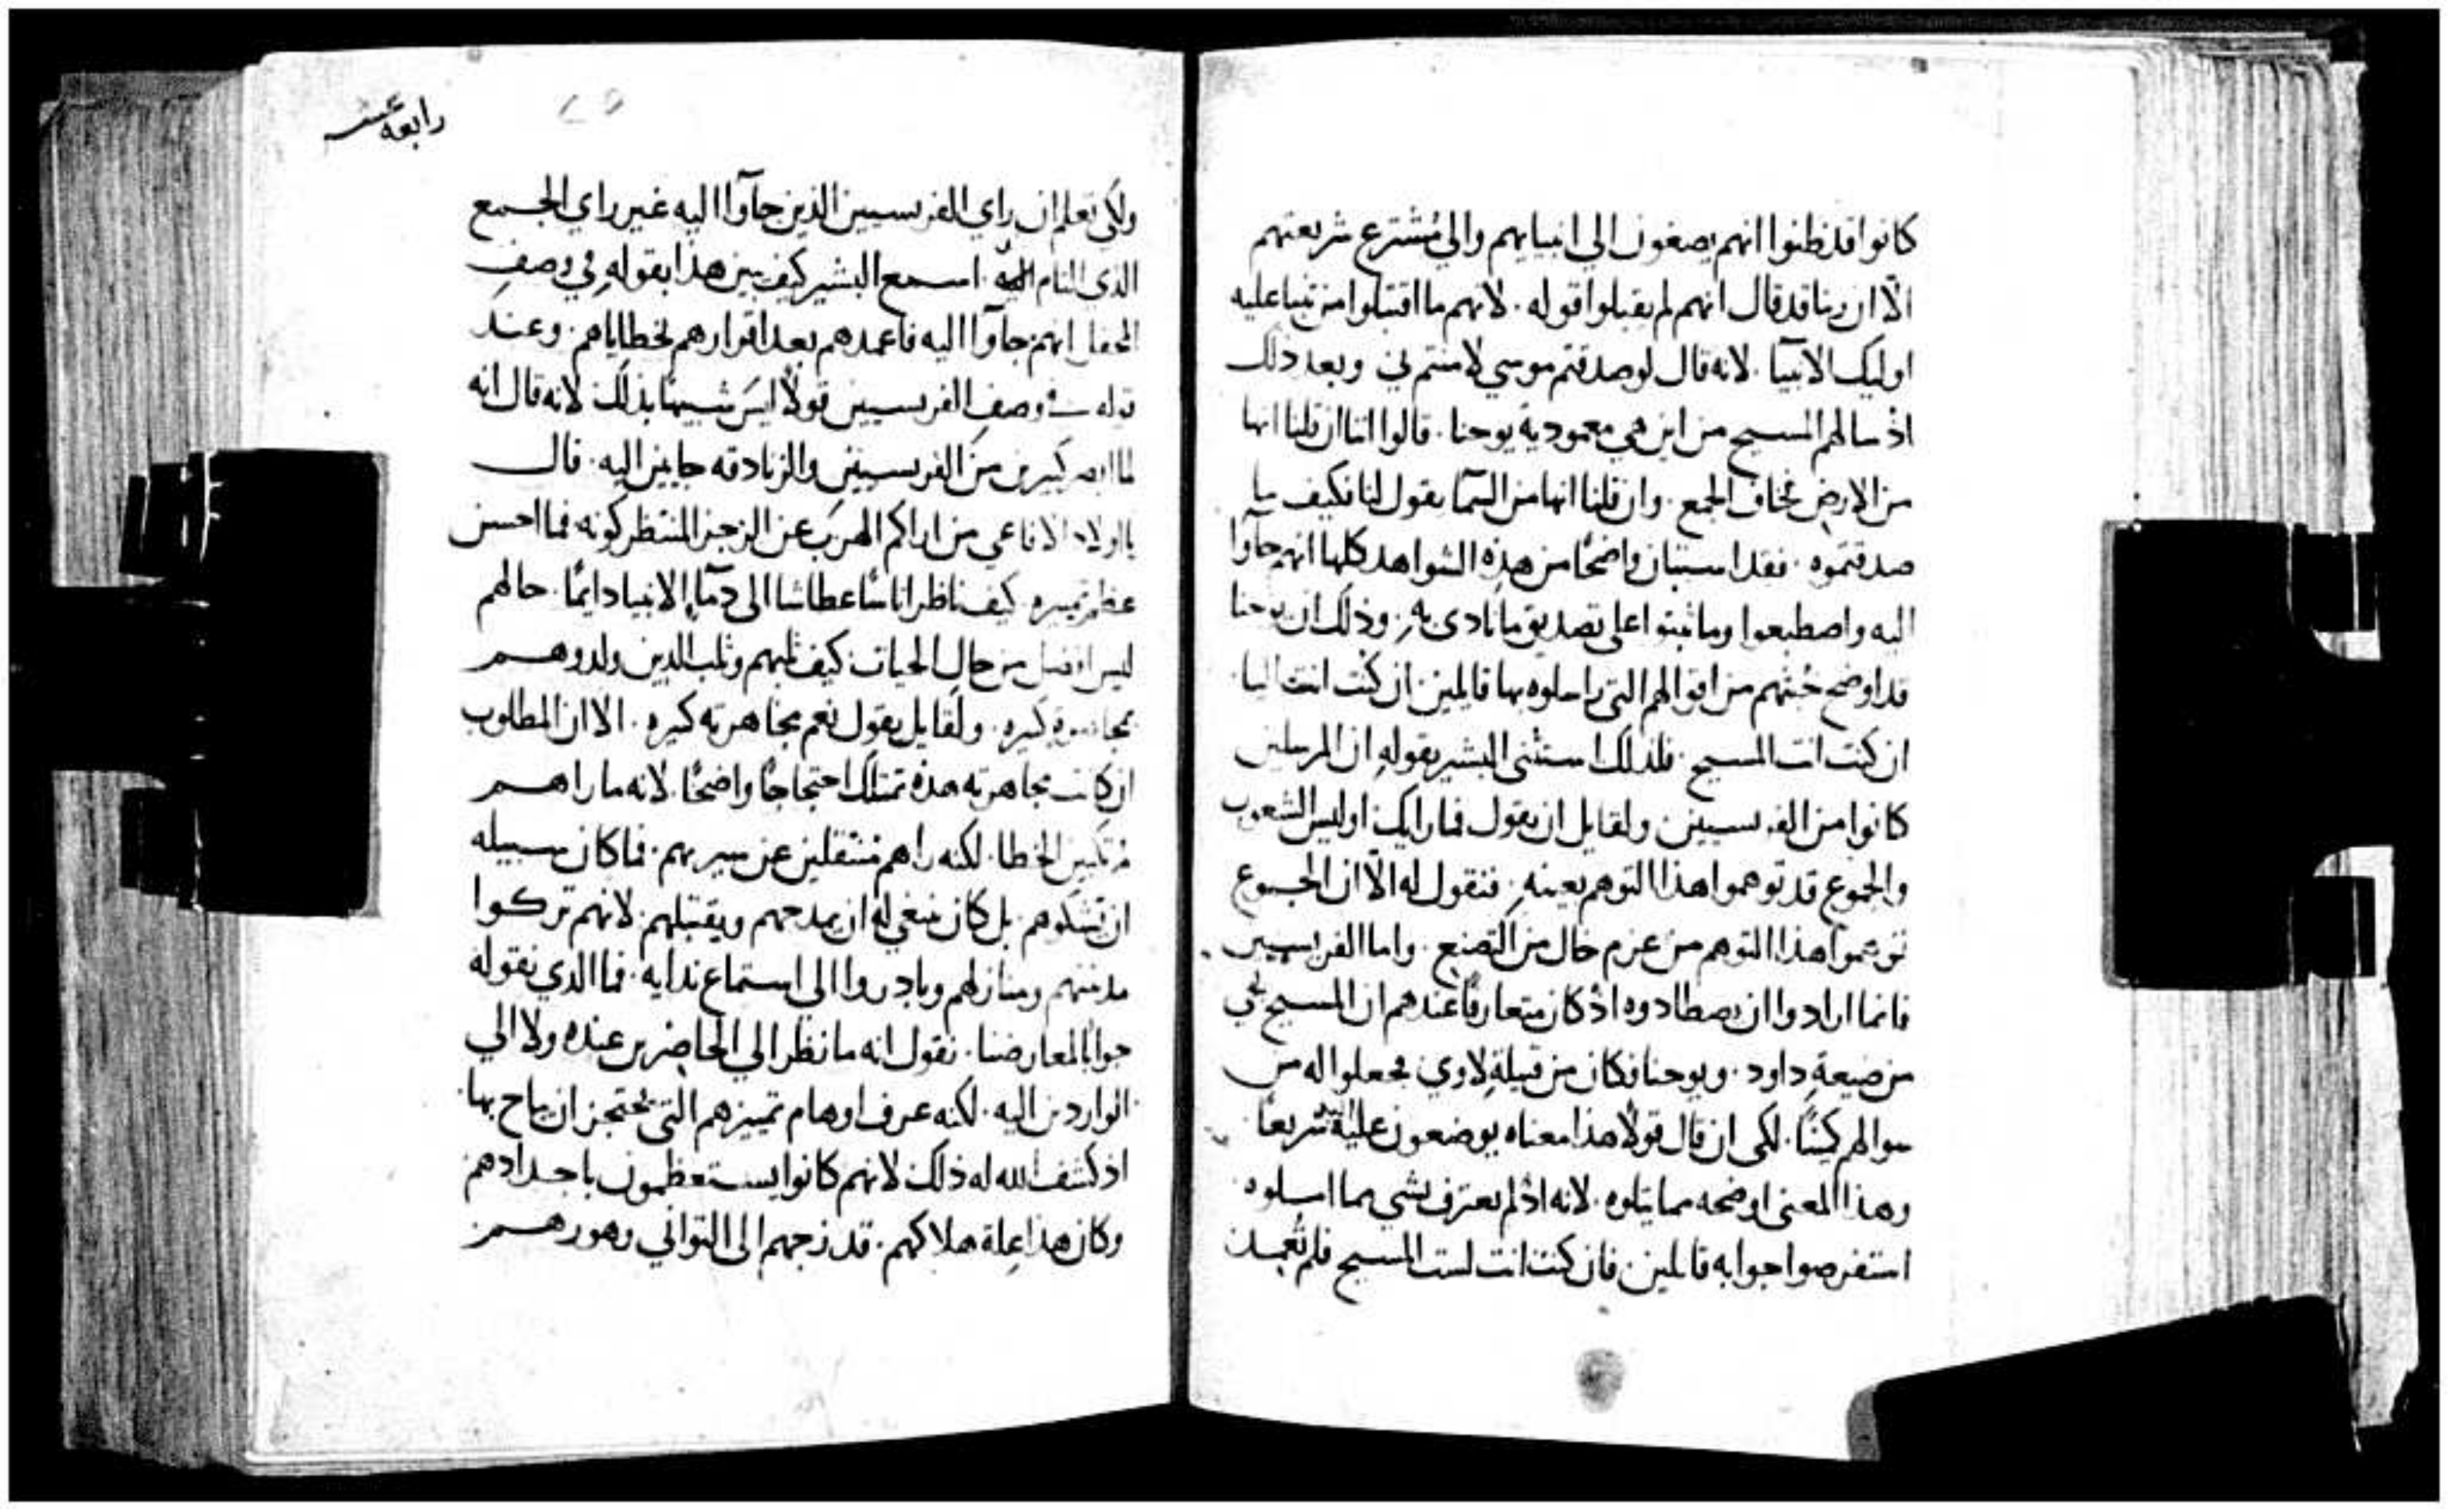 كانوا قد ظنوا انهم يصغون الي انبيايهم والي مُشترع شريعتهم
الّا ان ربنا قد قال انهم لم يقبلوا قوله . لانهم ما اقتبلوا من تنبا عليه
اوليك الانبيآ . لانه قال لو صدقتم موسي لامنتم بي وبعد ذلك
اذ سالهم المسيح من اين هي معمودية يوحنا . قالوا اننا ان قلنا انها
من الارض نخاف الجمع . وان قلنا انها من السمآ يقول لنا فكيف ما
صدقتموه . فقد استبان واضحًا من هذه الشواهد كلها انهم جآوا
اليه واصطبغوا وما ثبتوا على تصديق ما نادى به . وذلك ان يوحنا
قد اوضح خبثهم من اقوالهم التي راسلوه بها قايلين ان كنت انت ايليا
ان كنت انت المسيح . فلذلك استثنى البشير بقوله ان المرسلين
كانوا من الفريسيين ولقايل ان يقول فما رايك اوليس الشعوب
والجموع قد توهموا هذا التوهم بعينه . فنقول له الّا ان الجموع
توهموا هذا التوهم من عزم خال من التصنع . واما الفريسيين
فانما ارادوا ان يصطادوه اذ كان متعارفًا عندهم ان المسيح يجي
من ضيعة داود . ويوحنا فكان من قبيلة لاوي فجعلوا له من
سوالهم كمينًا . لكى ان قال قولًا هذا معناه يوضعون عليه سريعًا
وهذا المعنى اوضحه بما يتلوه . لانه اذ لم يعترف بشي مما املوه
استفرصوا جوابه قايلين . فان كنت انت لست المسيح فلم تُعمد
ولكي تعلم ان راي الفريسيين الذين جآوا اليه غير راي الجمع
الذي التام اليه . اسمع البشير كيف بين هذا بقوله في وصف
المحفل انهم جآوا اليه فاعمدهم بعد اقرارهم بخطاياهم . وعند
قوله في وصف الفريسيين قولًا ليس شبيهًا بذلك لانه قال انه
لما ابصر كثيرين من الفريسيين والزنادقه جايين اليه . قال
يااولاد الافاعي من اراكم الهرب عن الرجز المنتظر كونه فما احسن
عظم تمييزه . كيف ناظر اناسًا عطاشا الى دمآ الانبيا دايمًا . حالهم
ليس افضل من حال الحيات . كيف ثلبهم وثلب الذين ولدوهم
بمجاهرة كثيره . ولقايل يقول نعم مجاهرته كثيره . الا ان المطلوب
ان كانت مجاهرته هذه تمتلك احتجاجًا واضحًا لانه ما راهم
مرتكبين الخطا . لكنه راهم منتقلين عن سيرتهم . فما كان سبيله
ان يشكوهم . بل كان ينبغي له ان يمدحهم ويقتبلهم . لانهم تركوا
مدينتهم ومنازلهم وبادروا الى استماع ندايه . فما الذي نقوله
جوابًا لمعارضنا . نقول انه ما نظر الي الحاضرين عنده ولا الي
الواردين اليه . لكنه عرف اوهام تمييزهم التي يحتجز ان يباح بها .
اذ كشف الله له ذلك لانهم كانوا يستعظمون باجدادهم
وكان هذا علة هلاكهم . قد زجهم الى التواني
رابعه عشر